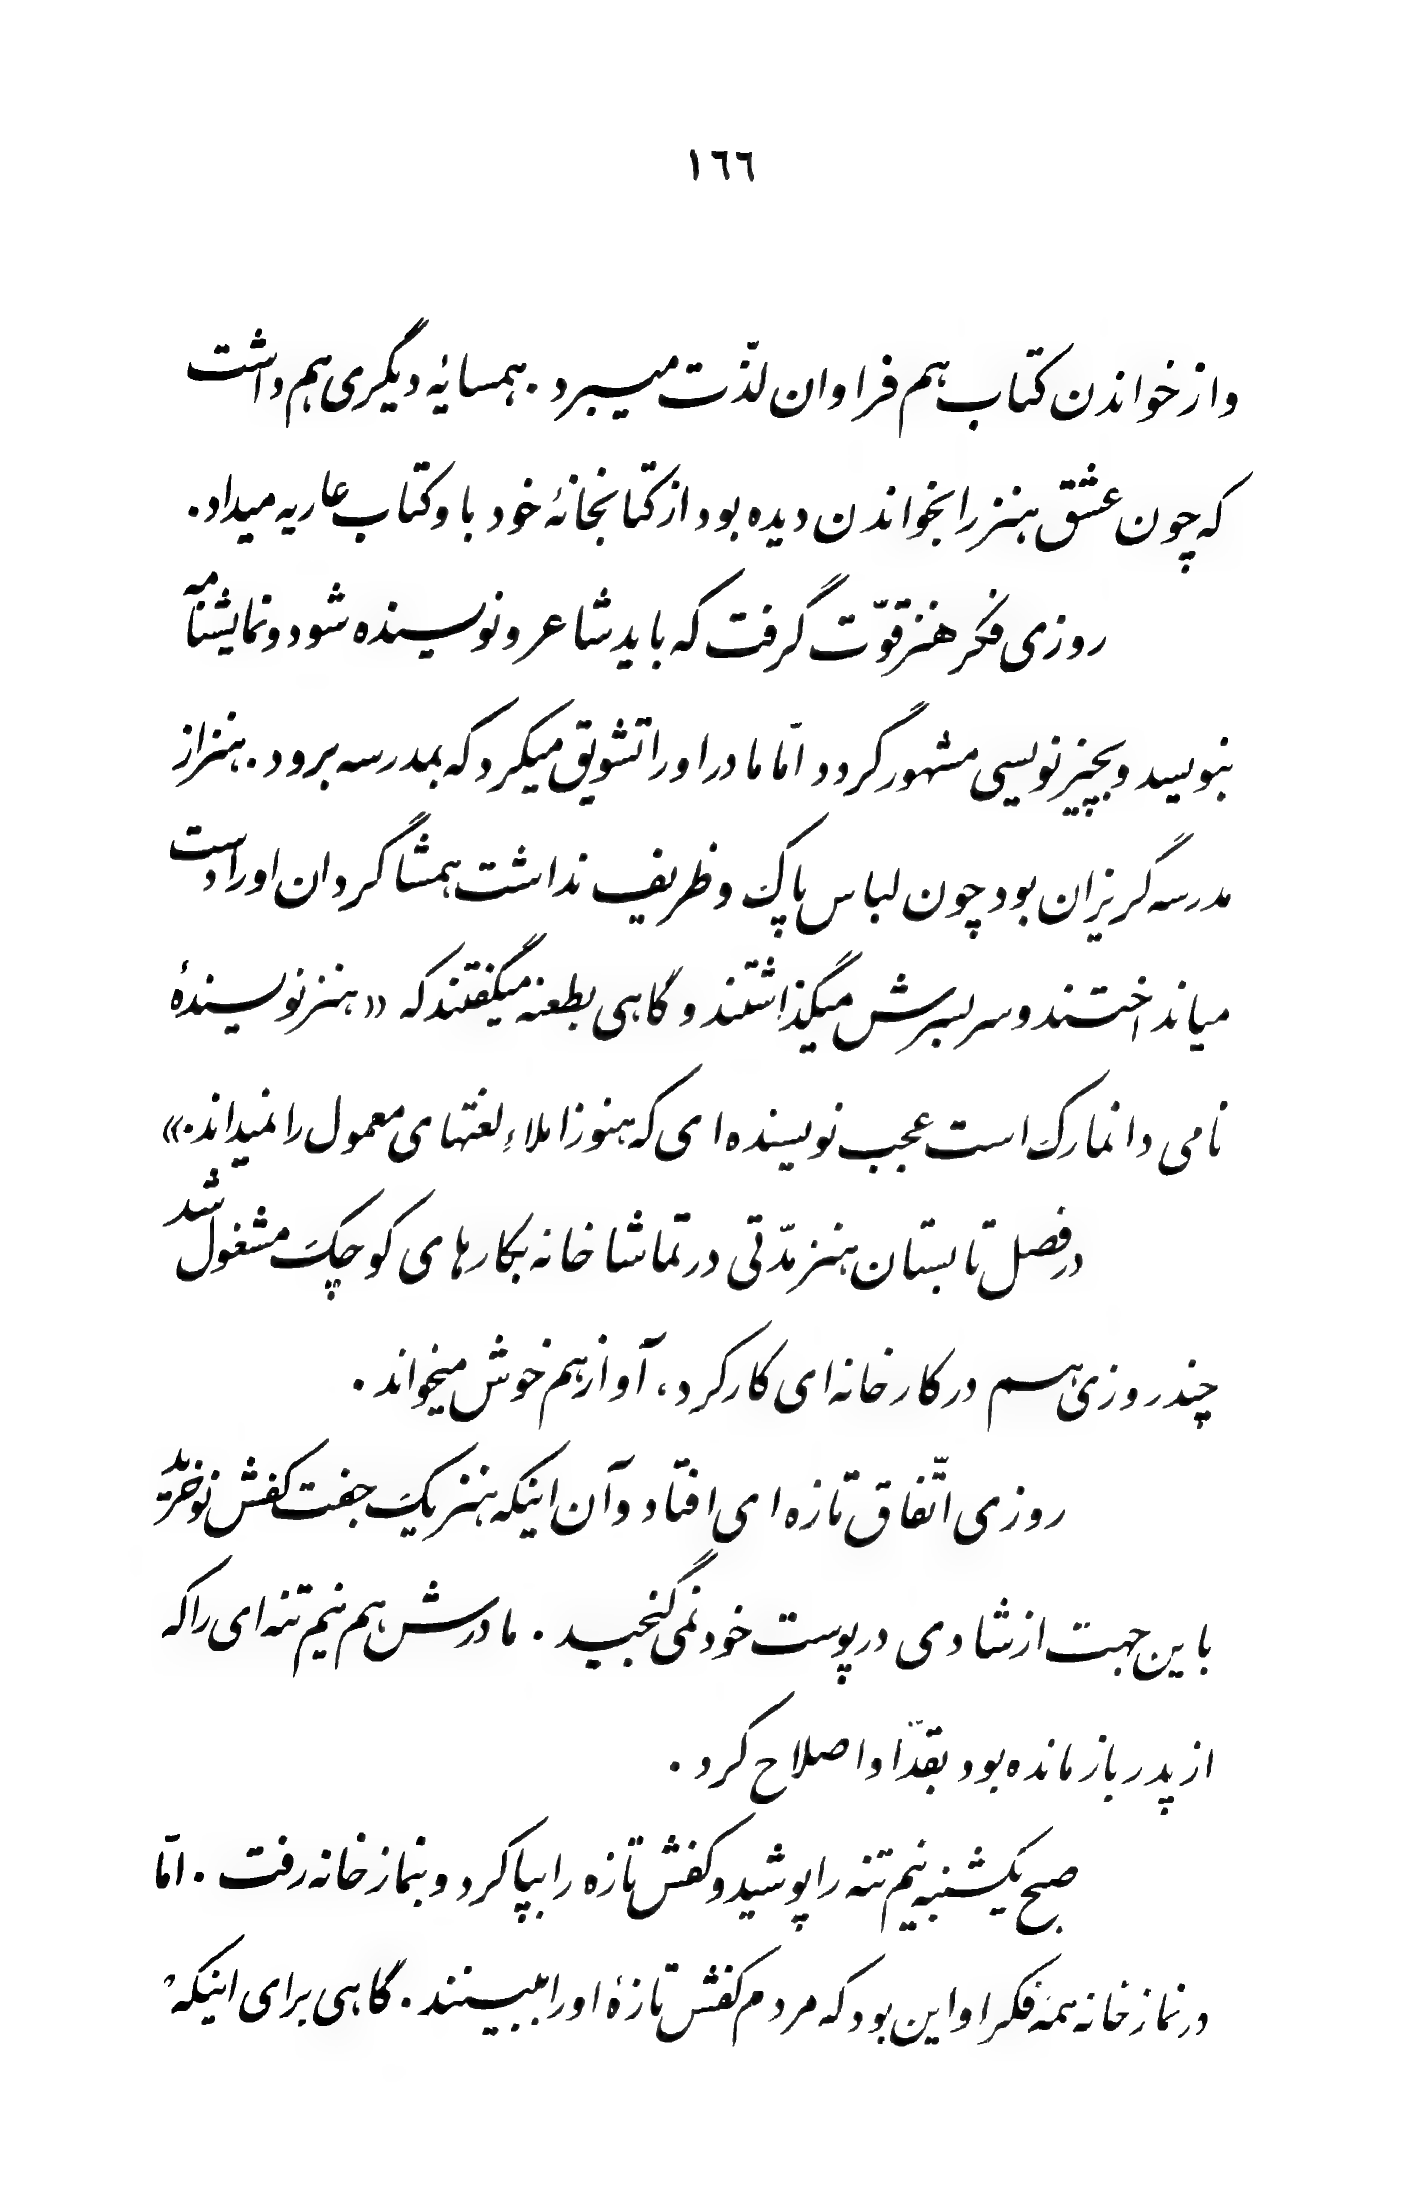 ١٦٦
و از خواندن کتاب هم فراوان لذّت میبرد . همسایهٔ دیگری هم داشت
که چون عشق هنز را بخواندن دیده بود از کتابخانهٔ خود باو کتاب عاریه میداد .
روزی فکر هنز قوّت گرفت که باید شاعر و نویسنده شود و نمایشنامه
بنویسد و بچیز نویسی مشهور گردد امّا مادر او را تشویق میکرد که بمدرسه برود . هنز از
مدرسه گریزان بود چون لباس پاک و ظریف نداشت همشاگردان او را دست
میانداختند و سر بسرش میگذاشتند و گاهی بطعنه میگفتند که « هنز نویسندهٔ
نامی دانمارک است عجب نویسنده ای که هنوز املاء لغتهای معمول را نمیداند . »
در فصل تابستان هنز مدّتی در تماشاخانه بکارهای کوچک مشغول شد
چند روزی هم در کارخانه ای کار کرد ، آواز هم خوش میخواند .
روزی اتّفاق تازه ای افتاد و آن اینکه هنز یک جفت کفش نو خرید
باین جهت از شادی در پوست خود نمی گنجید . مادرش هم نیم تنه ای را که
از پدر باز مانده بود بقدّ او اصلاح کرد .
صبح یکشنبه نیم تنه را پوشید و کفش تازه را بپا کرد و بنمازخانه رفت . امّا
در نمازخانه همهٔ فکر او این بود که مردم کفش تازهٔ او را ببینند . گاهی برای اینکه